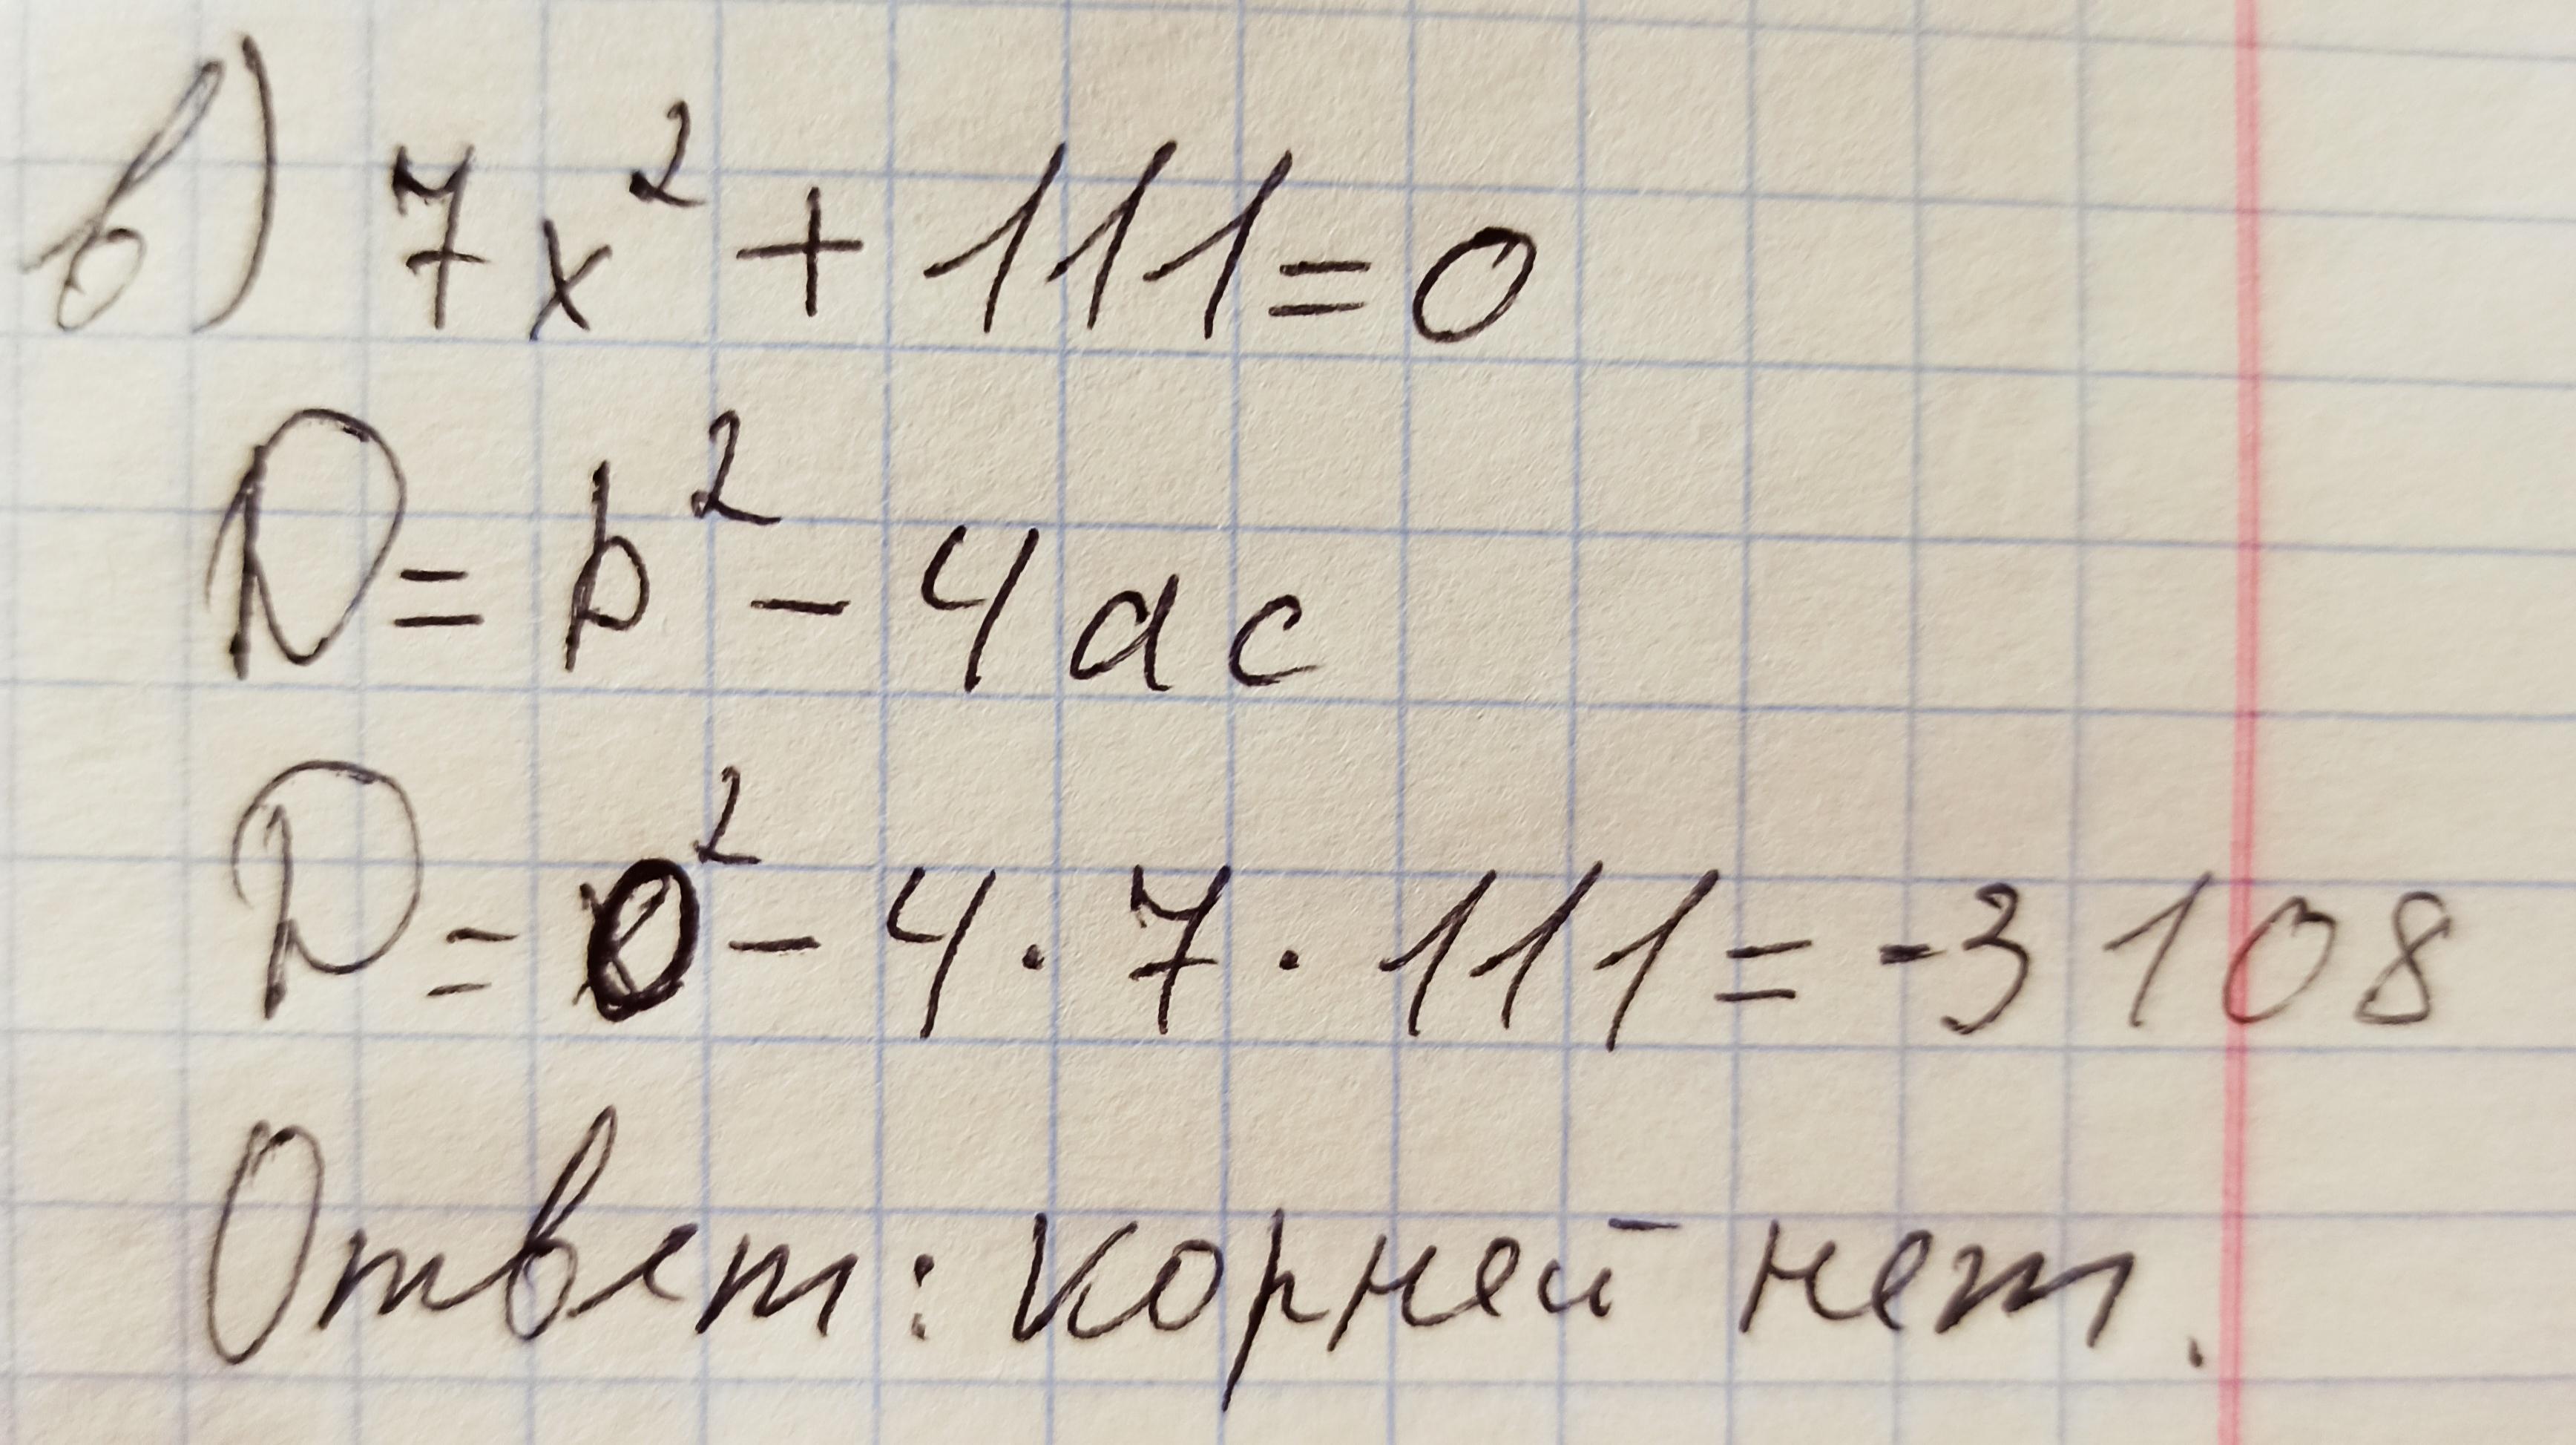 в) 7x² + 111 = 0
D = b² - 4ac
D = 0² - 4 · 7 · 111 = -3108
Ответ: корней нет.